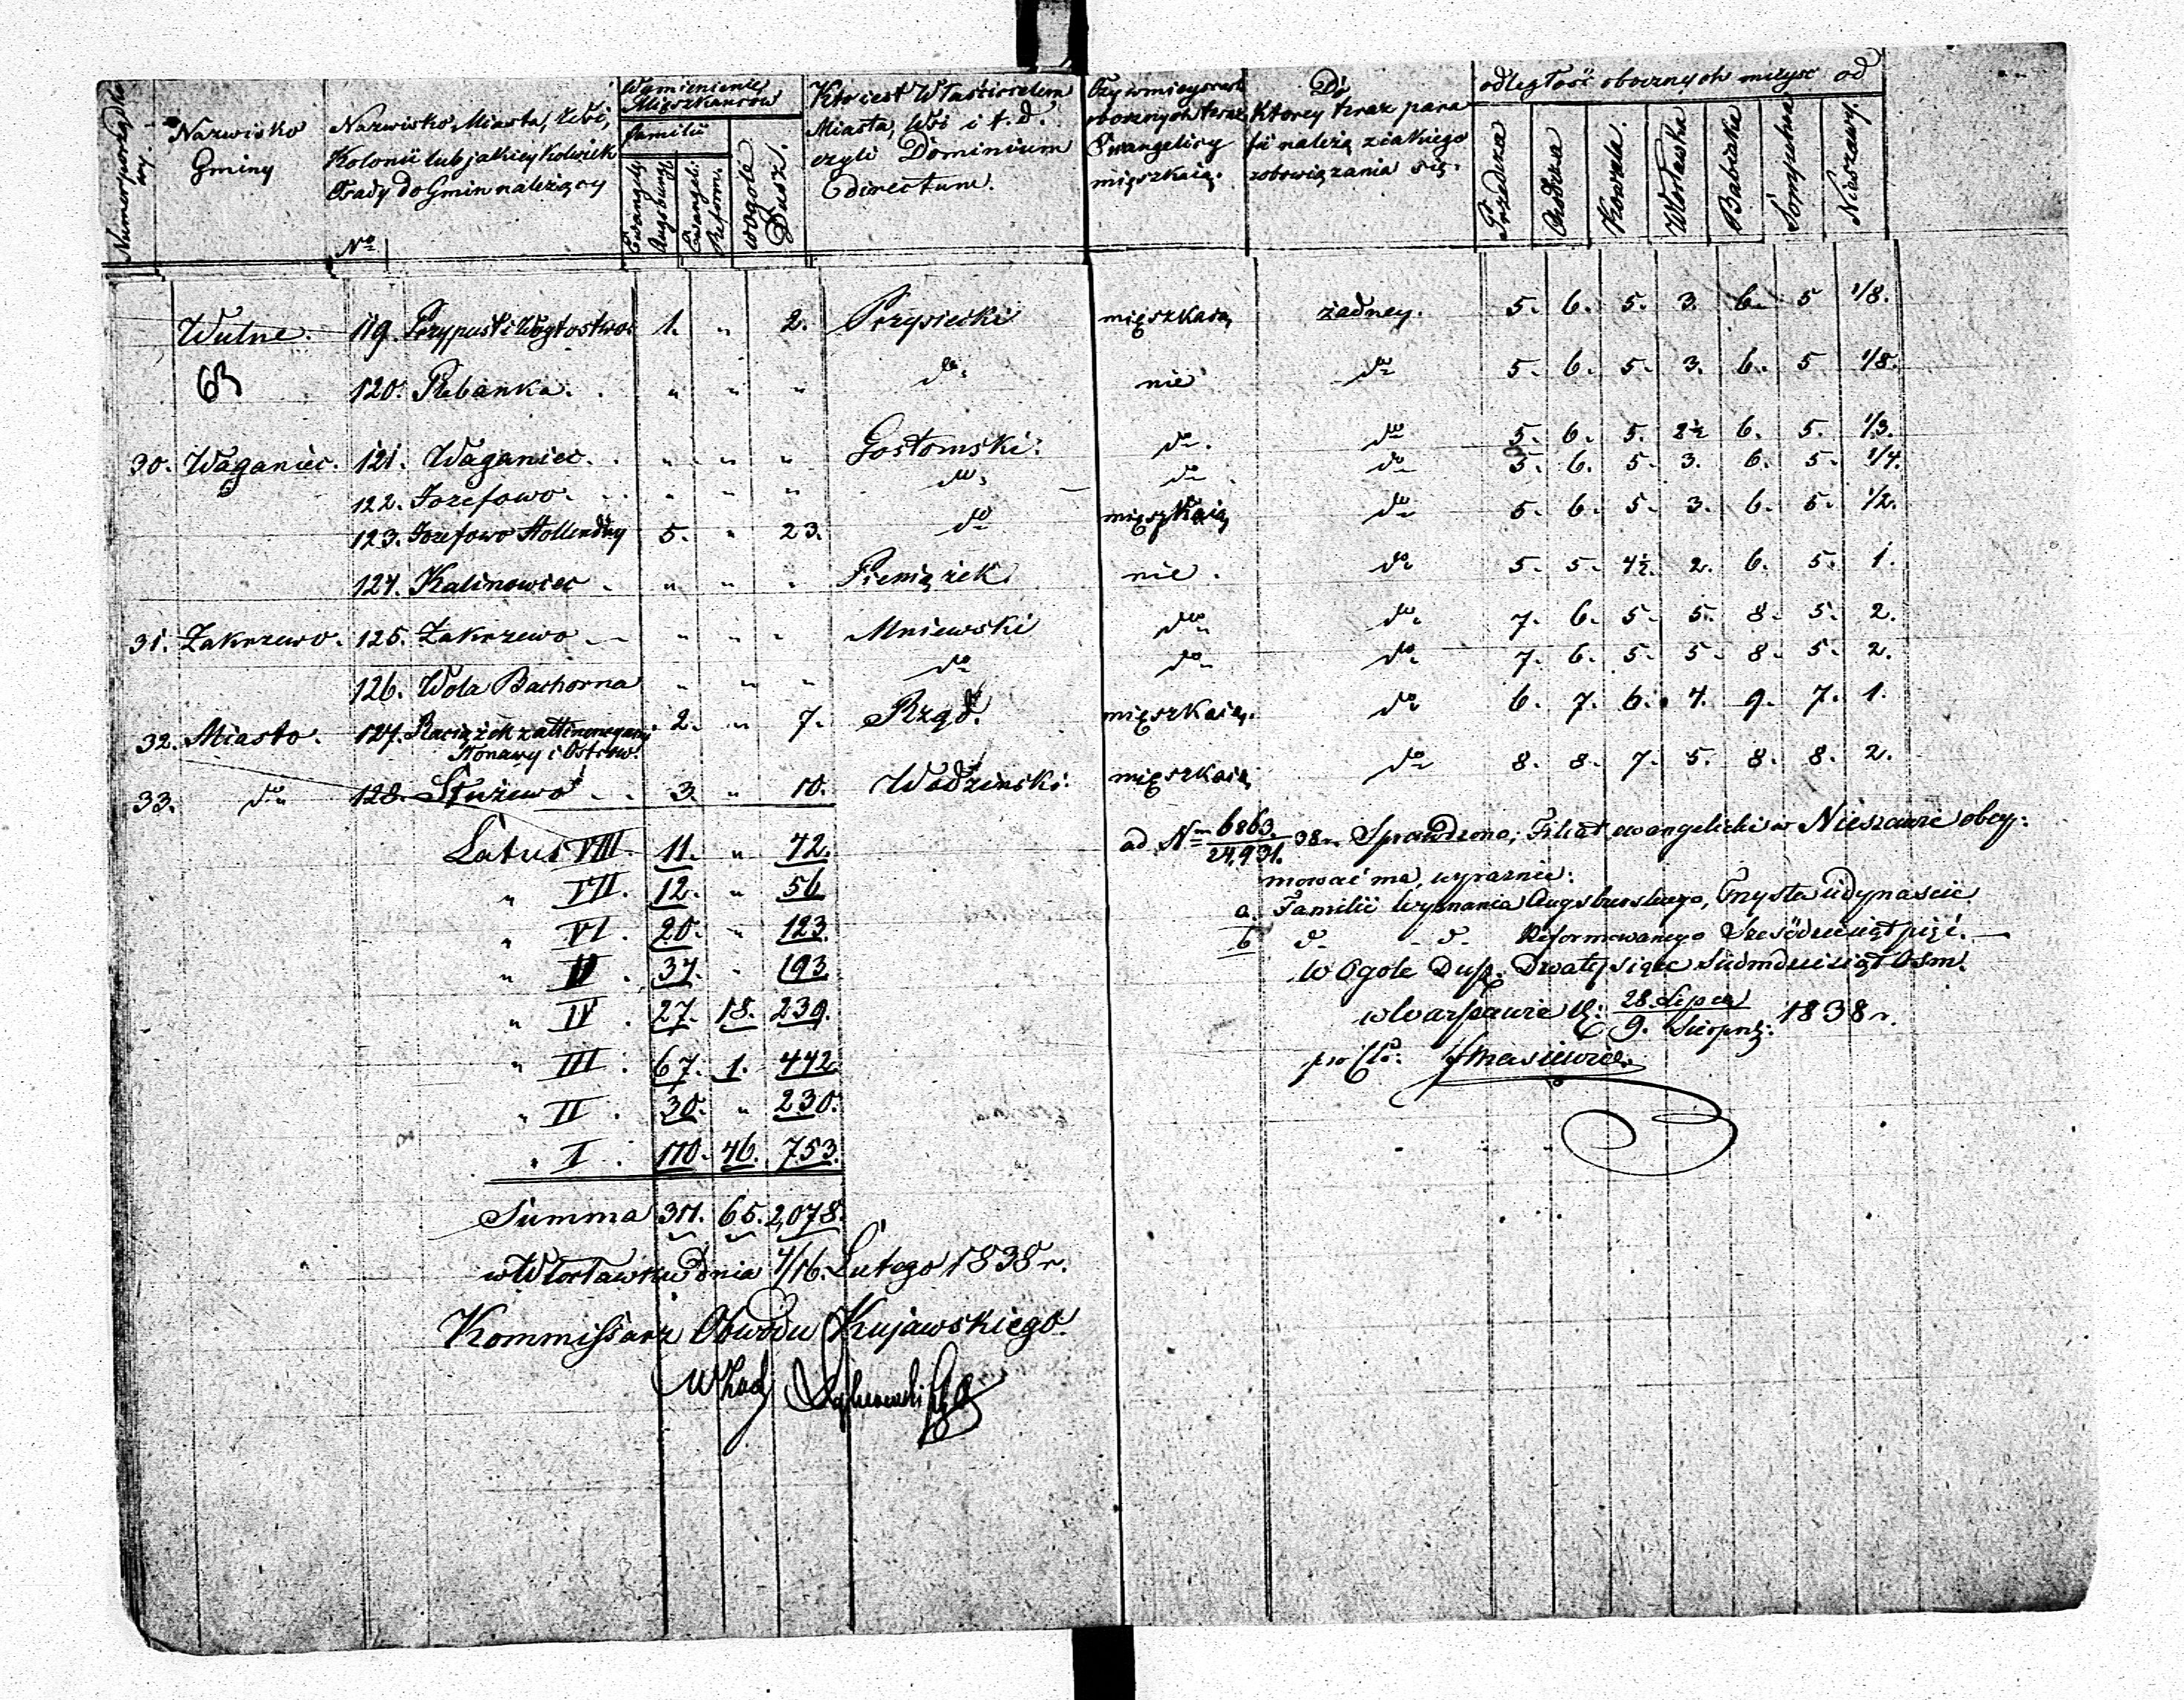 Numer porządkowy.
Nazwisko Gminy
Nazwisko Miasta, Wsi, Kolonii lub jakiey kolwiek Osady do Gmin należący
No
Wymienienie Mieszkańców
familii
Ewangely: Augsburg:
Ewangeli: Reform:
wogóle Dusz.
Kto iest Właścicielem Miasta, Wsi i t. d. czyli Dominium directum.
Czy w mieyscach obocznych teraz Ewangelicy mięszkaią.
Do ktorey teraz parafii należą z iakiego zobowiązania się.
odległość obocznych mieysc od
Przedecza
Ozorkowa
Kowala.
Włocławka
Babiaka
Sompolna
Nieszawy.
Wulne. 119. Przypust i Wógtostwo 1. " 2. Przysiecki mięszkaią żadney. 5. 6. 5. 3. 6. 5 1/8.
63 120. Plebanka. . " " " do. nie do 5. 6. 5. 3. 6. 5 1/8.
30. Waganiec. 121. Waganiec. . " " " Gostomski. do. do 5. 6. 5. 2½ 6. 5. 1/3.
122. Jozefowo. . " " " do. do. do 5. 6. 5. 3. 6. 5. 1/4.
123. Jozefowo Hollendry 5. " 23. do mięszkaią do 5. 6. 5. 3. 6. 5. 1/2.
124. Kalinowiec . " " " Pieniążek. nie. do 5. 5. 4½. 2. 6. 5. 1.
31. Zakrzewo. 125. Zakrzewo " " " Mniewski do do. 7. 6. 5. 5. 8. 5. 2.
126. Wola Bachorna " " " do do do. 7. 6. 5. 5. 8. 5. 2.
32. Miasto. 127. Raciążek z attinencyami 2. " 7. Rząd. mięszkaią. do 6. 7. 6. 4. 9. 7. 1.
Konawy i Ostrow.
33. do 128. Służewo . . 3. " 10. Wodzinski. mięszkaią do 8. 8. 7. 5. 8. 8. 2.
Latus VIII. 11. " 42.
" VII. 12. " 56
" VI. 20. " 123
" V. 37. " 193
" IV. 27. 18. 239.
" III. 67. 1. 442
" II. 30. " 230.
" I. 110. 46. 753.
Summa 311. 65. 2,078.
w Włocławku Dnia 4/16. Lutego 1838 r.
Kommissarz Obwodu Kujawskiego.
ad Nm 6863/24,931. 38 r. Sprawdzono; Filiał ewangelicki w Nieszawie obey-
mować ma, wyraznie:
a. Familii Wyznania Augsburskiego, Trzysta iedynaście
b do do Reformowanego Sześćdziesiąt pięć.
w Ogóle Dusz. Dwa tysiące Siedmdziesiąt Osm.
w Warszawie d: 28. Lipca/9. Sierpn: 1838 r.